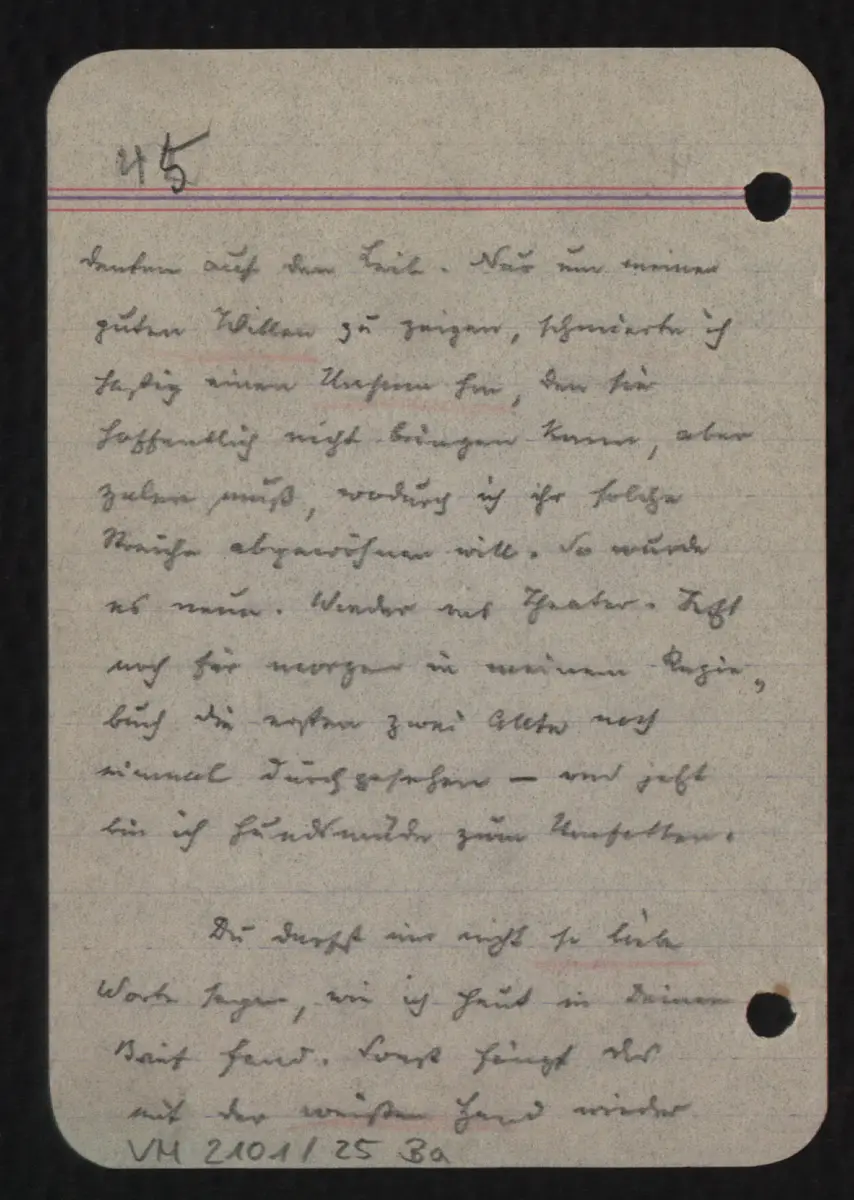 45
denten auf den Leib. Nur um meinen
guten Willen zu zeigen, schmierte ich
hastig einen Unsinn hin, den sie
hoffentlich nicht bringen kann, aber
zalen muß, wodurch ich ihr solche
Streiche abgewöhnen will. So wurde
es neun. Wieder ins Theater. Jetzt
noch für morgen in meinem Regie„
buch die ersten zwei Akte noch
einmal durchgesehen — und jetzt
bin ich hundsmüde zum Umfallen.
Du darfst mir nicht so liebe
Worte sagen, wie ich heut in Deinem
Brief fand. Sonst fängt das
mit der weißen Hand wieder
VM 2101/25 Ba